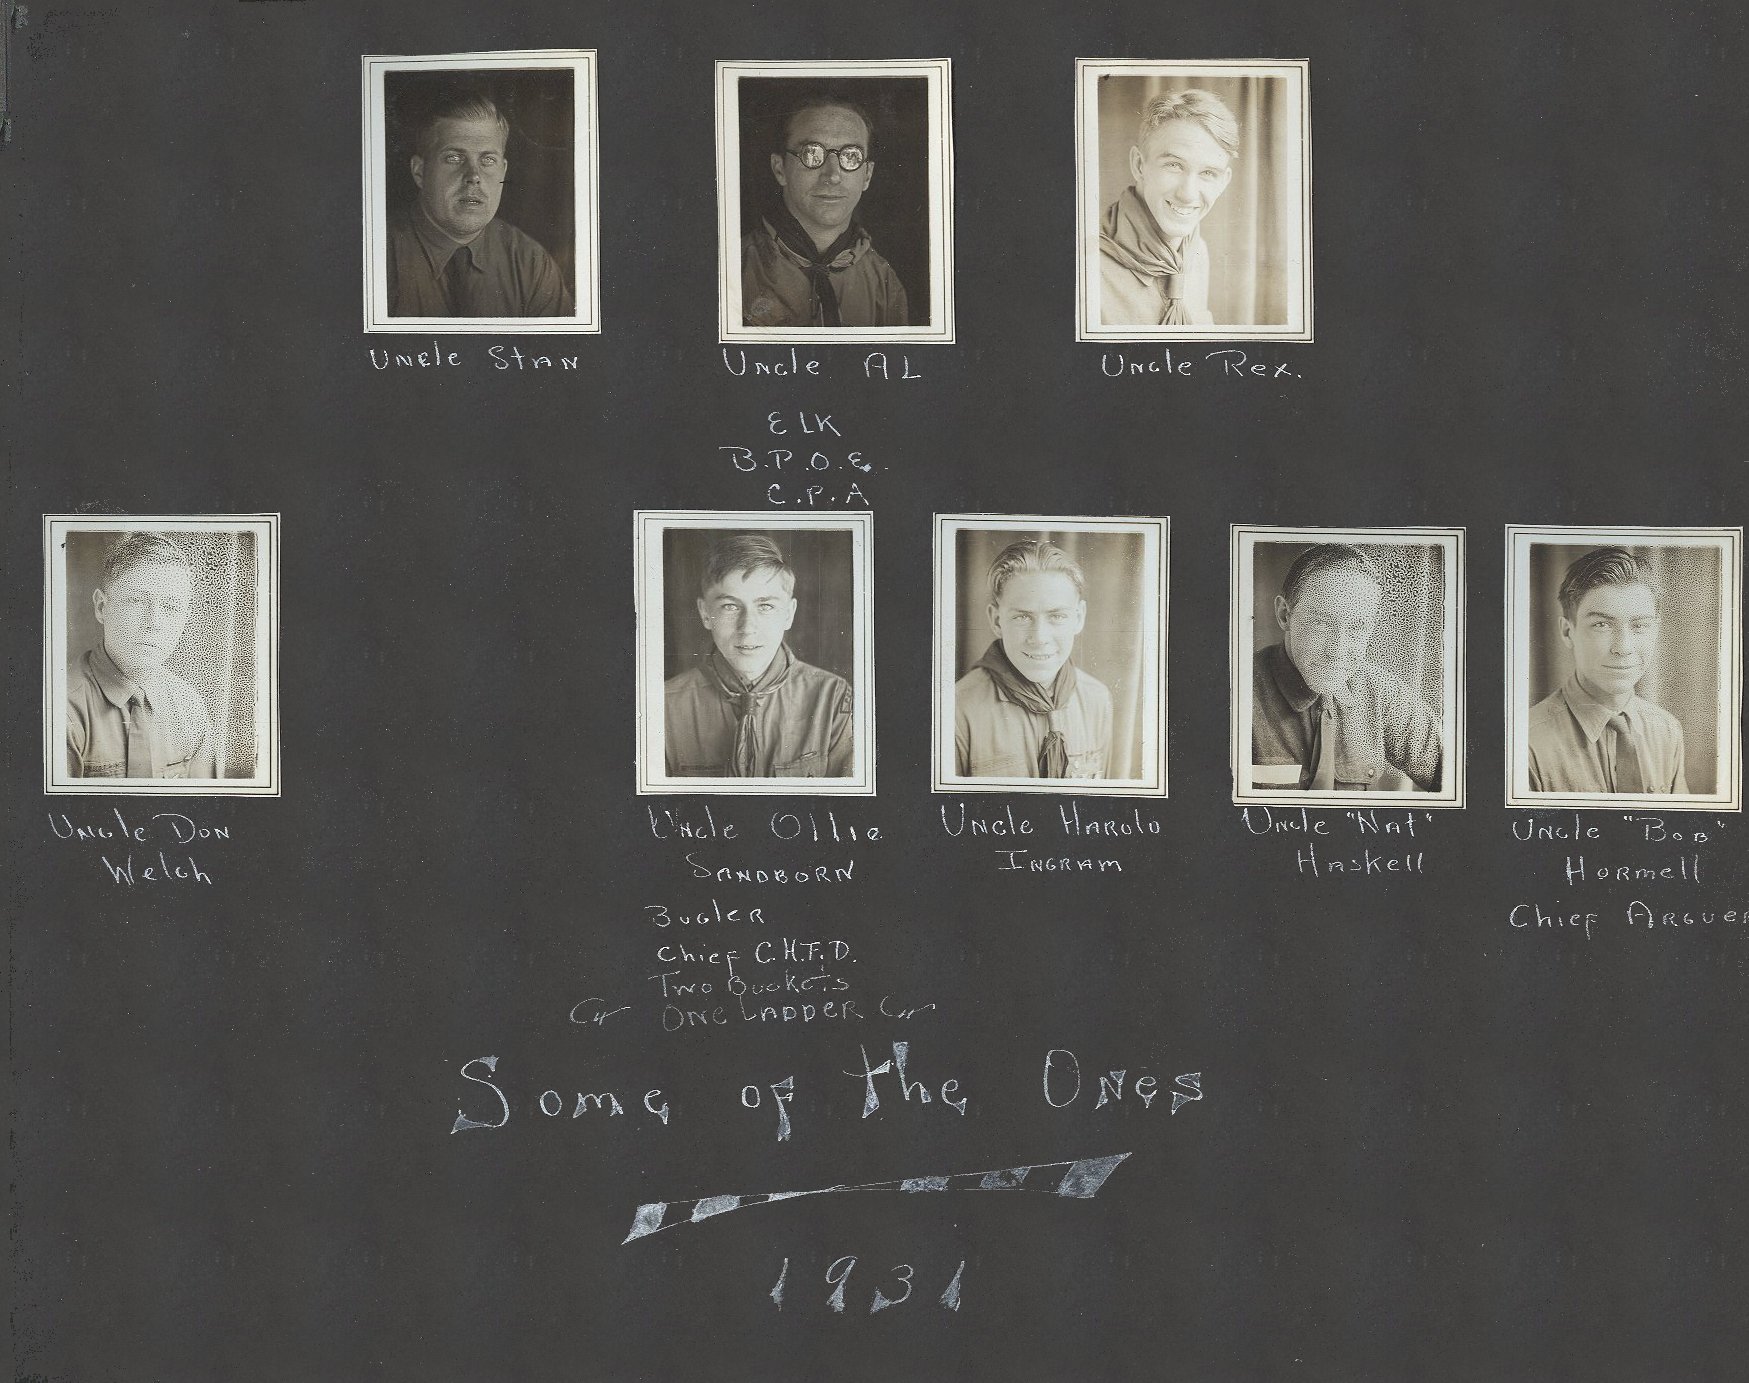 Uncle Stan
Uncle AL
Uncle Rex.
ELK
B.P.O.E.
C.P.A
Uncle Don
Welch
Uncle Ollie
Sandborn
Bugler
Chief C.H.F.D.
Two Buckets
One Ladder
Uncle Harold
Ingram
Uncle "Nat"
Haskell
Uncle "Bob"
Hormell
Chief Arguer
Some of the Ones
1931